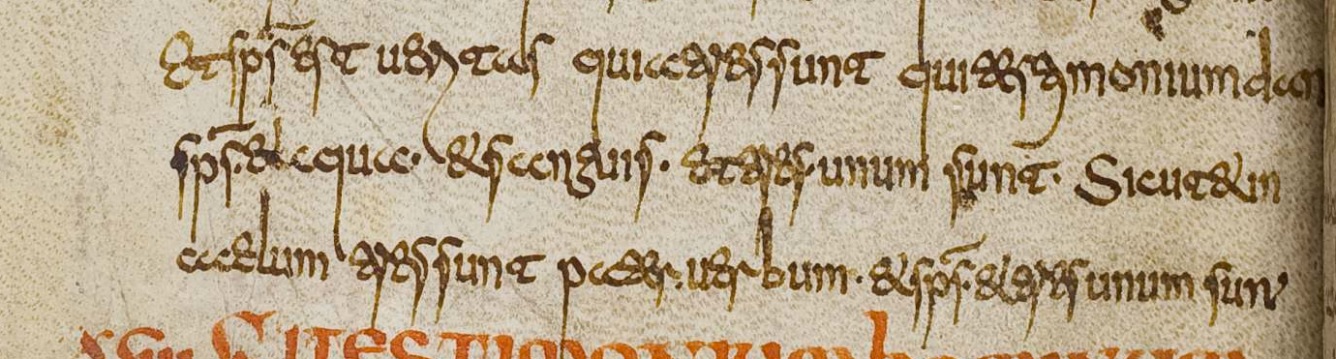 Et sp̄s est ueritas quia tres sunt qui testimonium dan
sp̄s. et aqua. et sanguis. et tres unum sunt. Sicut et in
caelum tres sunt pater. uerbum. et sp̄s. et tres unum sunt
TESTIMONIUM